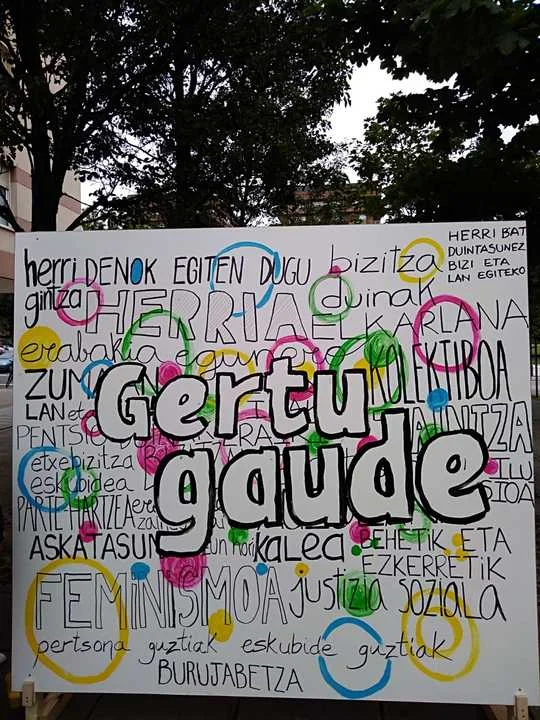 HERRI BAT
DUINTASUNEZ
BIZI ETA
LAN EGITEKO
herri DENOK EGITEN DUGU bizitza
gintza HERRIA duinak
ELKARLANA
erabakia egunero
KOLEKTIBOA
Gertu
gaude
LAN et
etxebizitza
eskubidea
PARTE HARTZEA
ASKATASUN kalea BEHETIK ETA
EZKERRETIK
FEMINISMOA justizia soziala
pertsona guztiak eskubide guztiak
BURUJABETZA